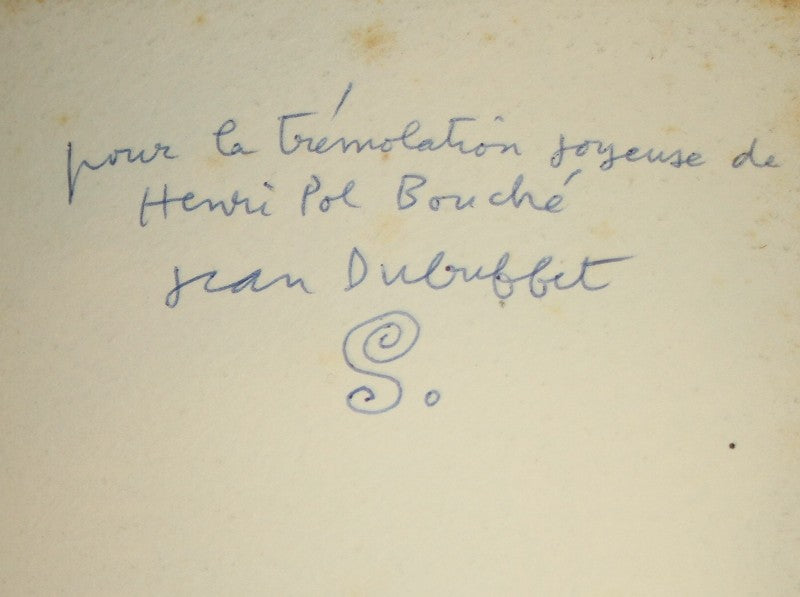 pour la trémolation joyeuse de
Henri Pol Bouché
Jean Dubuffet
S.